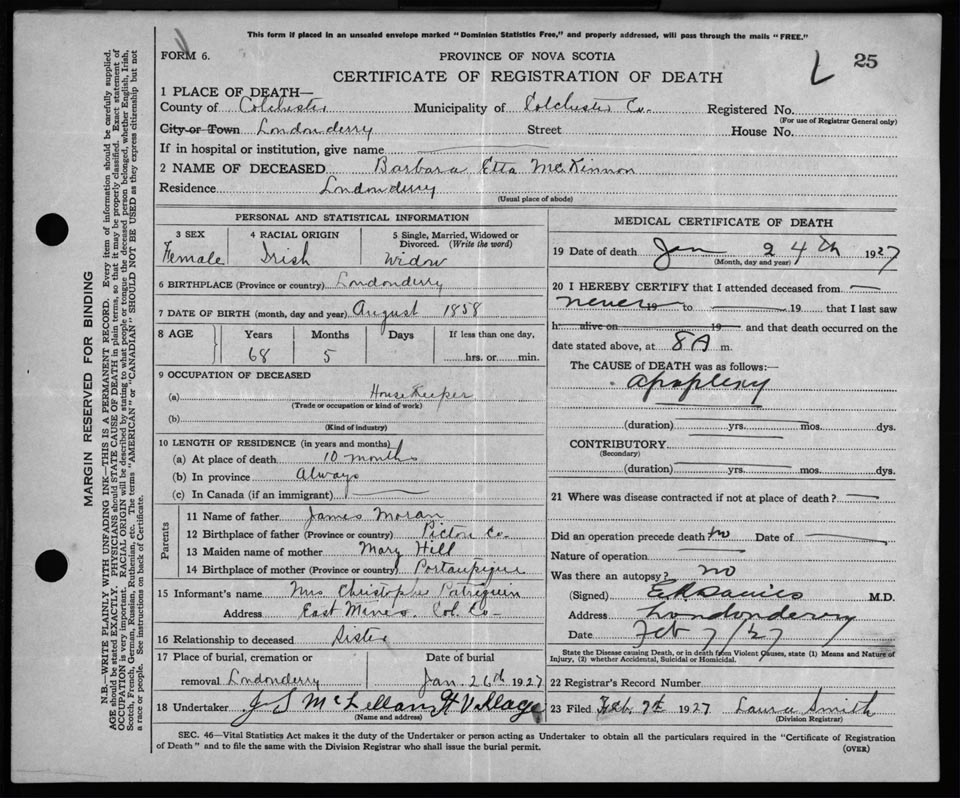 This form if placed in an unsealed envelope marked "Dominion Statistics Free," and properly addressed, will pass through the mails "FREE."
FORM 6.
PROVINCE OF NOVA SCOTIA
25
CERTIFICATE OF REGISTRATION OF DEATH
L
1 PLACE OF DEATH—
County of Colchester Municipality of Colchester Co. Registered No.
(For use of Registrar General only)
City or Town Londonderry Street House No.
If in hospital or institution, give name
2 NAME OF DECEASED Barbara Etta McKinnon
Residence Londonderry
(Usual place of abode)
PERSONAL AND STATISTICAL INFORMATION
3 SEX 4 RACIAL ORIGIN 5 Single, Married, Widowed or Divorced. (Write the word)
Female Irish Widow
6 BIRTHPLACE (Province or country) Londonderry
7 DATE OF BIRTH (month, day and year) August 1858
8 AGE Years Months Days If less than one day,
68 5 hrs. or min.
9 OCCUPATION OF DECEASED
(a) House Keeper
(Trade or occupation or kind of work)
(b)
(Kind of industry)
10 LENGTH OF RESIDENCE (in years and months)
(a) At place of death 10 months
(b) In province Always
(c) In Canada (if an immigrant)
Parents
11 Name of father James Moran
12 Birthplace of father (Province or country) Pictou Co.
13 Maiden name of mother Mary Hill
14 Birthplace of mother (Province or country) Portaupique
15 Informant's name Mrs Christopher Patriquin
Address East Mines. Col. Co—
16 Relationship to deceased Sister
17 Place of burial, cremation or Date of burial
removal Londonderry Jan. 26th 1927
18 Undertaker J S McLellan Gt Village
(Name and address)
MEDICAL CERTIFICATE OF DEATH
19 Date of death Jan 24th 1927
(Month, day and year)
20 I HEREBY CERTIFY that I attended deceased from
never 19 to 19 that I last saw
h alive on 19 and that death occurred on the
date stated above, at 8 A m.
The CAUSE of DEATH was as follows:—
apoplexy
(duration) yrs. mos. dys.
CONTRIBUTORY
(Secondary)
(duration) yrs. mos. dys.
21 Where was disease contracted if not at place of death?
Did an operation precede death no Date of
Nature of operation
Was there an autopsy? no
(Signed) M.D.
Address Londonderry
Date Feb 7/27
State the Disease causing Death, or in death from Violent Causes, state (1) Means and Nature of
Injury, (2) whether Accidental, Suicidal or Homicidal.
22 Registrar's Record Number
23 Filed Feb. 7th 1927 Laura Smith
(Division Registrar)
SEC. 46—Vital Statistics Act makes it duty of the Undertaker or person acting as Undertaker to obtain all the particulars required in the "Certificate of Registration
of Death" and to file the same with the Division Registrar who shall issue the burial permit.
(OVER)
MARGIN RESERVED FOR BINDING
N.B.—WRITE PLAINLY WITH UNFADING INK—THIS IS A PERMANENT RECORD. Every item of information should be carefully supplied.
AGE should be stated EXACTLY. PHYSICIANS should STATE CAUSE OF DEATH in plain terms, so that it may be properly classified. Exact statement of
OCCUPATION is very important. RACIAL ORIGIN will be described by stating to what people or tongue the deceased person belonged, whether English, Irish,
Scotch, French, German, Russian, Ruthenian, etc. The terms "AMERICAN" or "CANADIAN" SHOULD NOT BE USED as they express citizenship but not
a race or people. See instructions on back of Certificate.